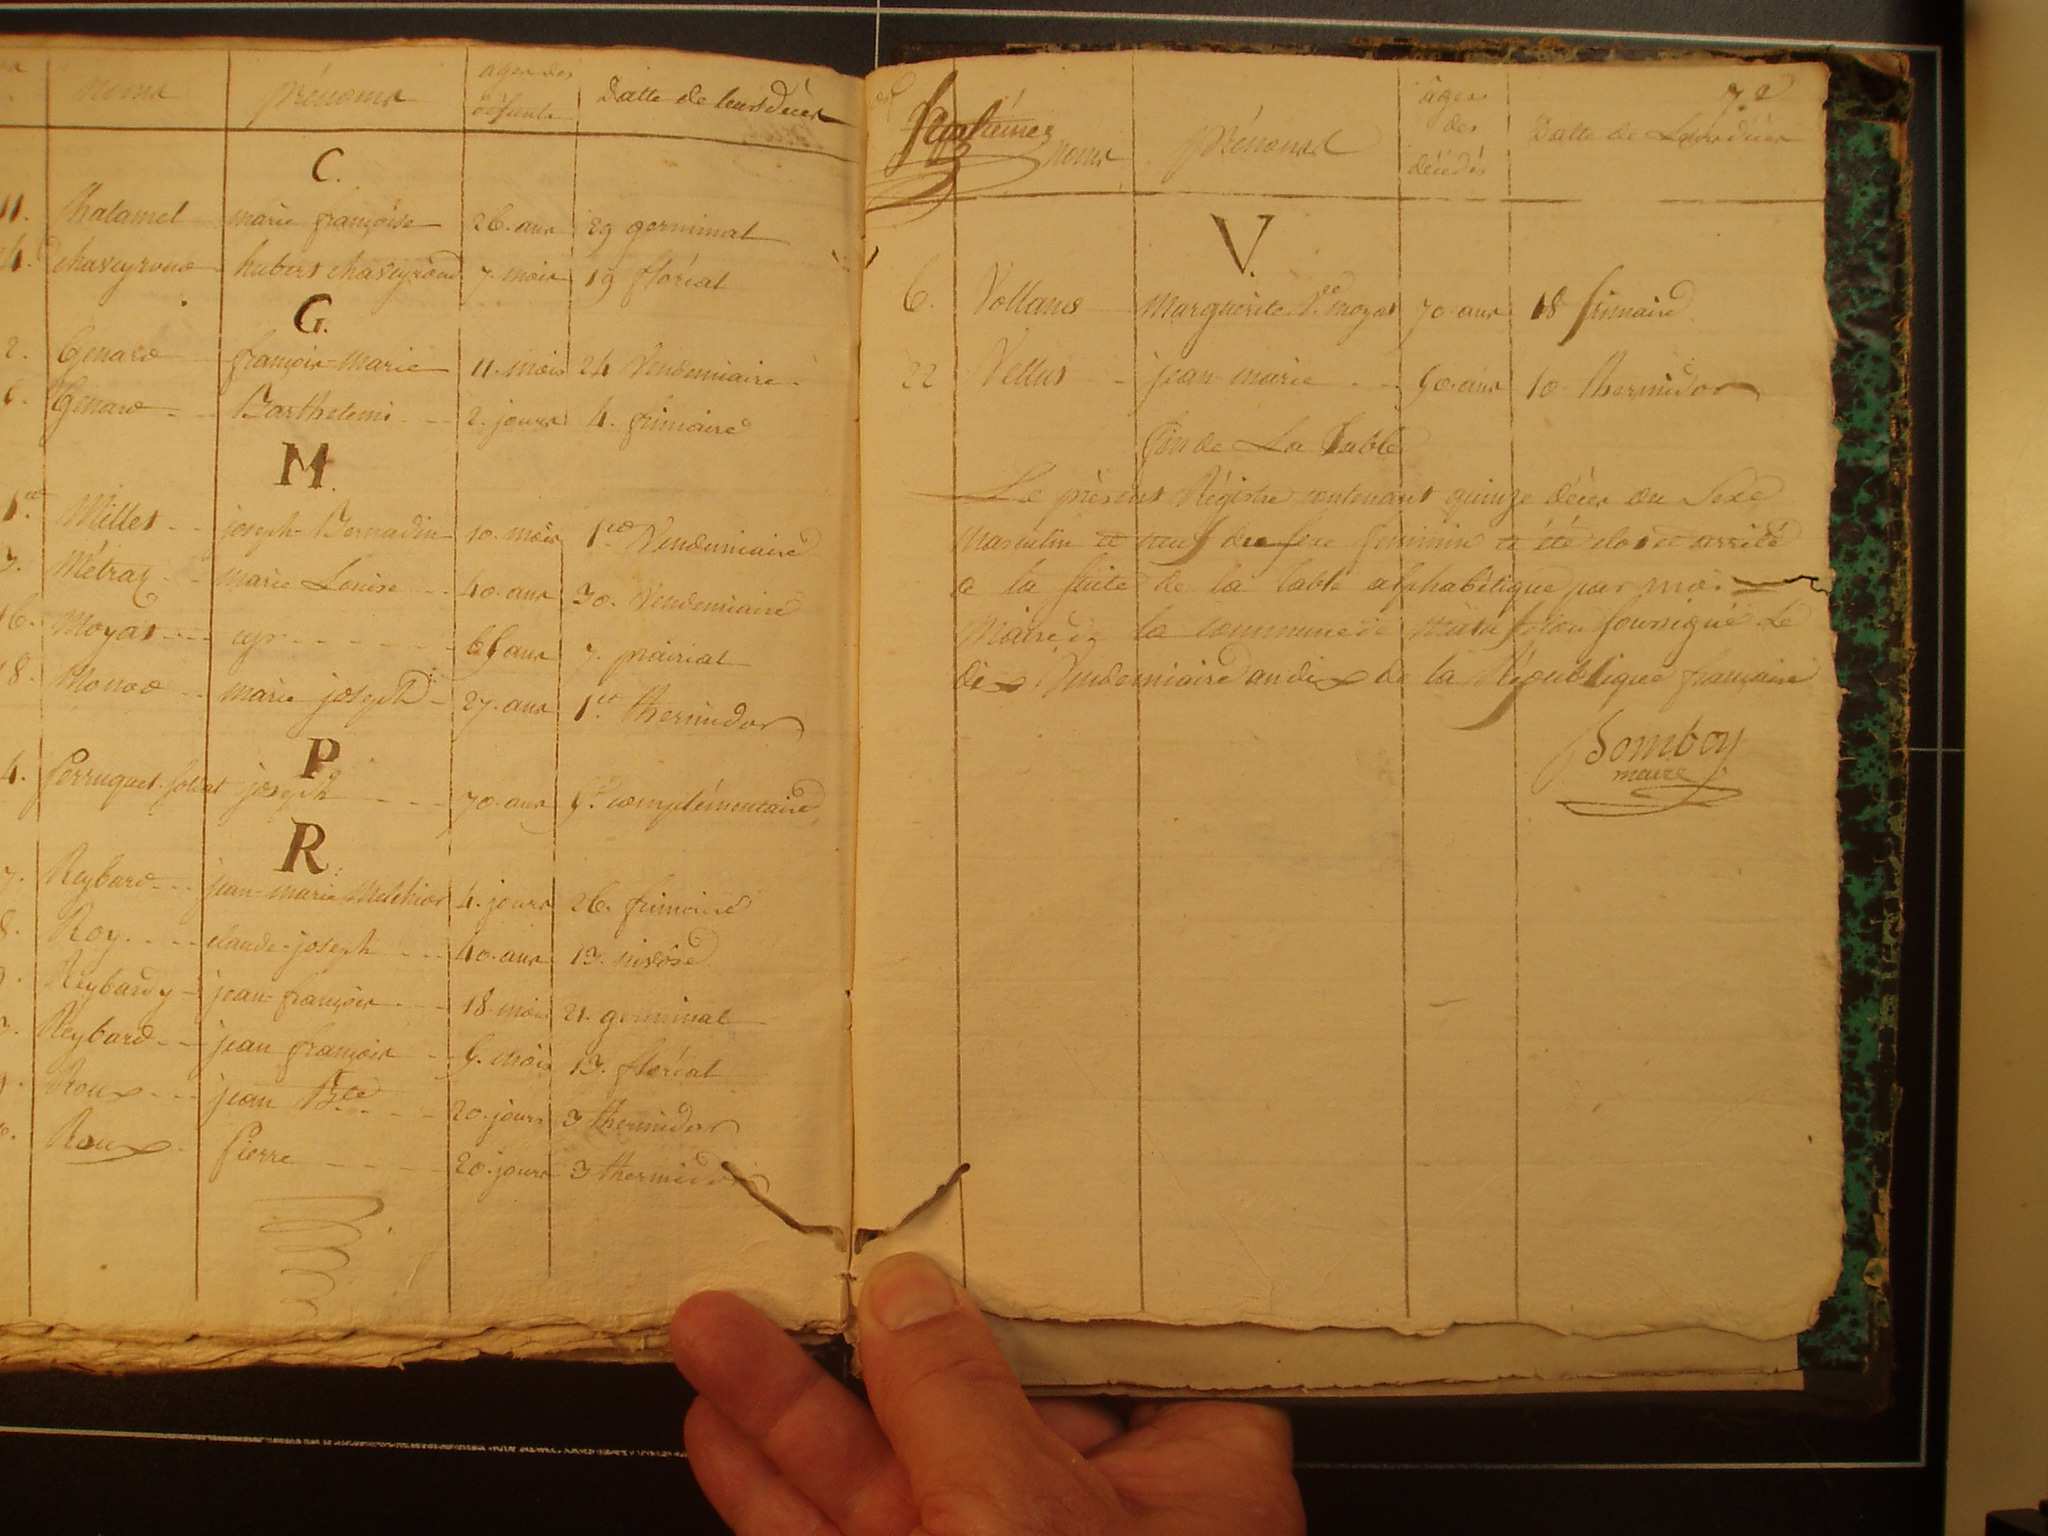 Noms prénoms ages des défunts Datte de leurs décès
C.
11. Chalamel marie françoise 26. ans 29 germinal
chaseyroud hubert chaseyroud 7. mois 19 floréal
G.
2. Genard françois-Marie 11. mois 24 Vendemiaire
Genard Barthelemi 2. jours 4. frimaire
M.
1er Millet joseph-Bernadin 10. mois 1er Vendemiaire
3. Métraz marie Louise 40. ans 30. Vendemiaire
16. Moyat cyr ans 7. prairial
18. Monod marie joseph 27. ans 1er thermidor
P
4. Perruquet joseph 70. ans complémentaire
R.
7. Reybard jean-marie Melchior 4. jours 26. frimaire
8. Roy claude-joseph 40. ans 13. nivôse
Reybard jean-françois 18 mois 21. germinal
Reybard jean françois mois 13. floréal
Roux jean Bte 20. jours 3 thermidor
Roux Pierre 20. jours 3 thermidor
Noms prénoms âges des décédés Datte de Leur décès
V.
6. Vollans Marguerite Ve moyat 70. ans 18 frimaire
22 Vellut jean marie ans 10 thermidor
fin de La table
Le présent Régistre contenant quinze décès du Sexe
Masculin et neuf du sexe feminin a été clos et arrêté
a la suite de la table alphabétique par moi
Maire de la commune de soussigné Le
dix Vendemiaire an dix de la République française
Bomboy
maire